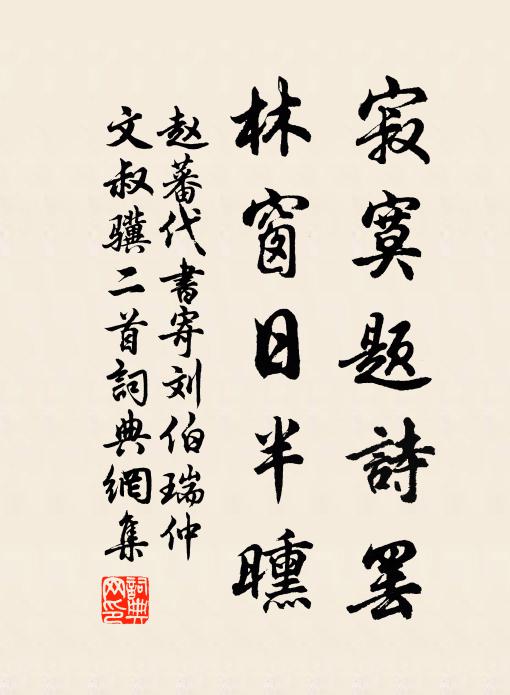 寂寞題詩罢
林窗日半曛
赵蕃代書寄刘伯瑞仲
文叔骥二首詞典網集
詞典
网印